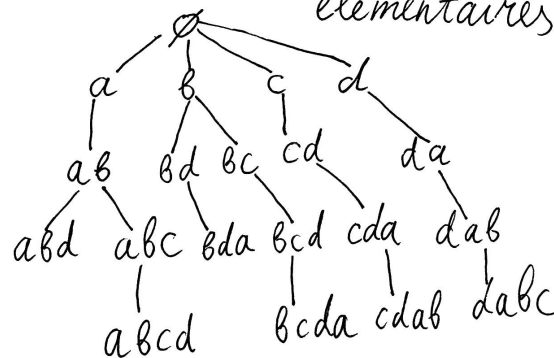 élémentaires
∅
a b c d
ab bd bc cd da
abd abc bda bcd cda dab
abcd bcda cdab dabc